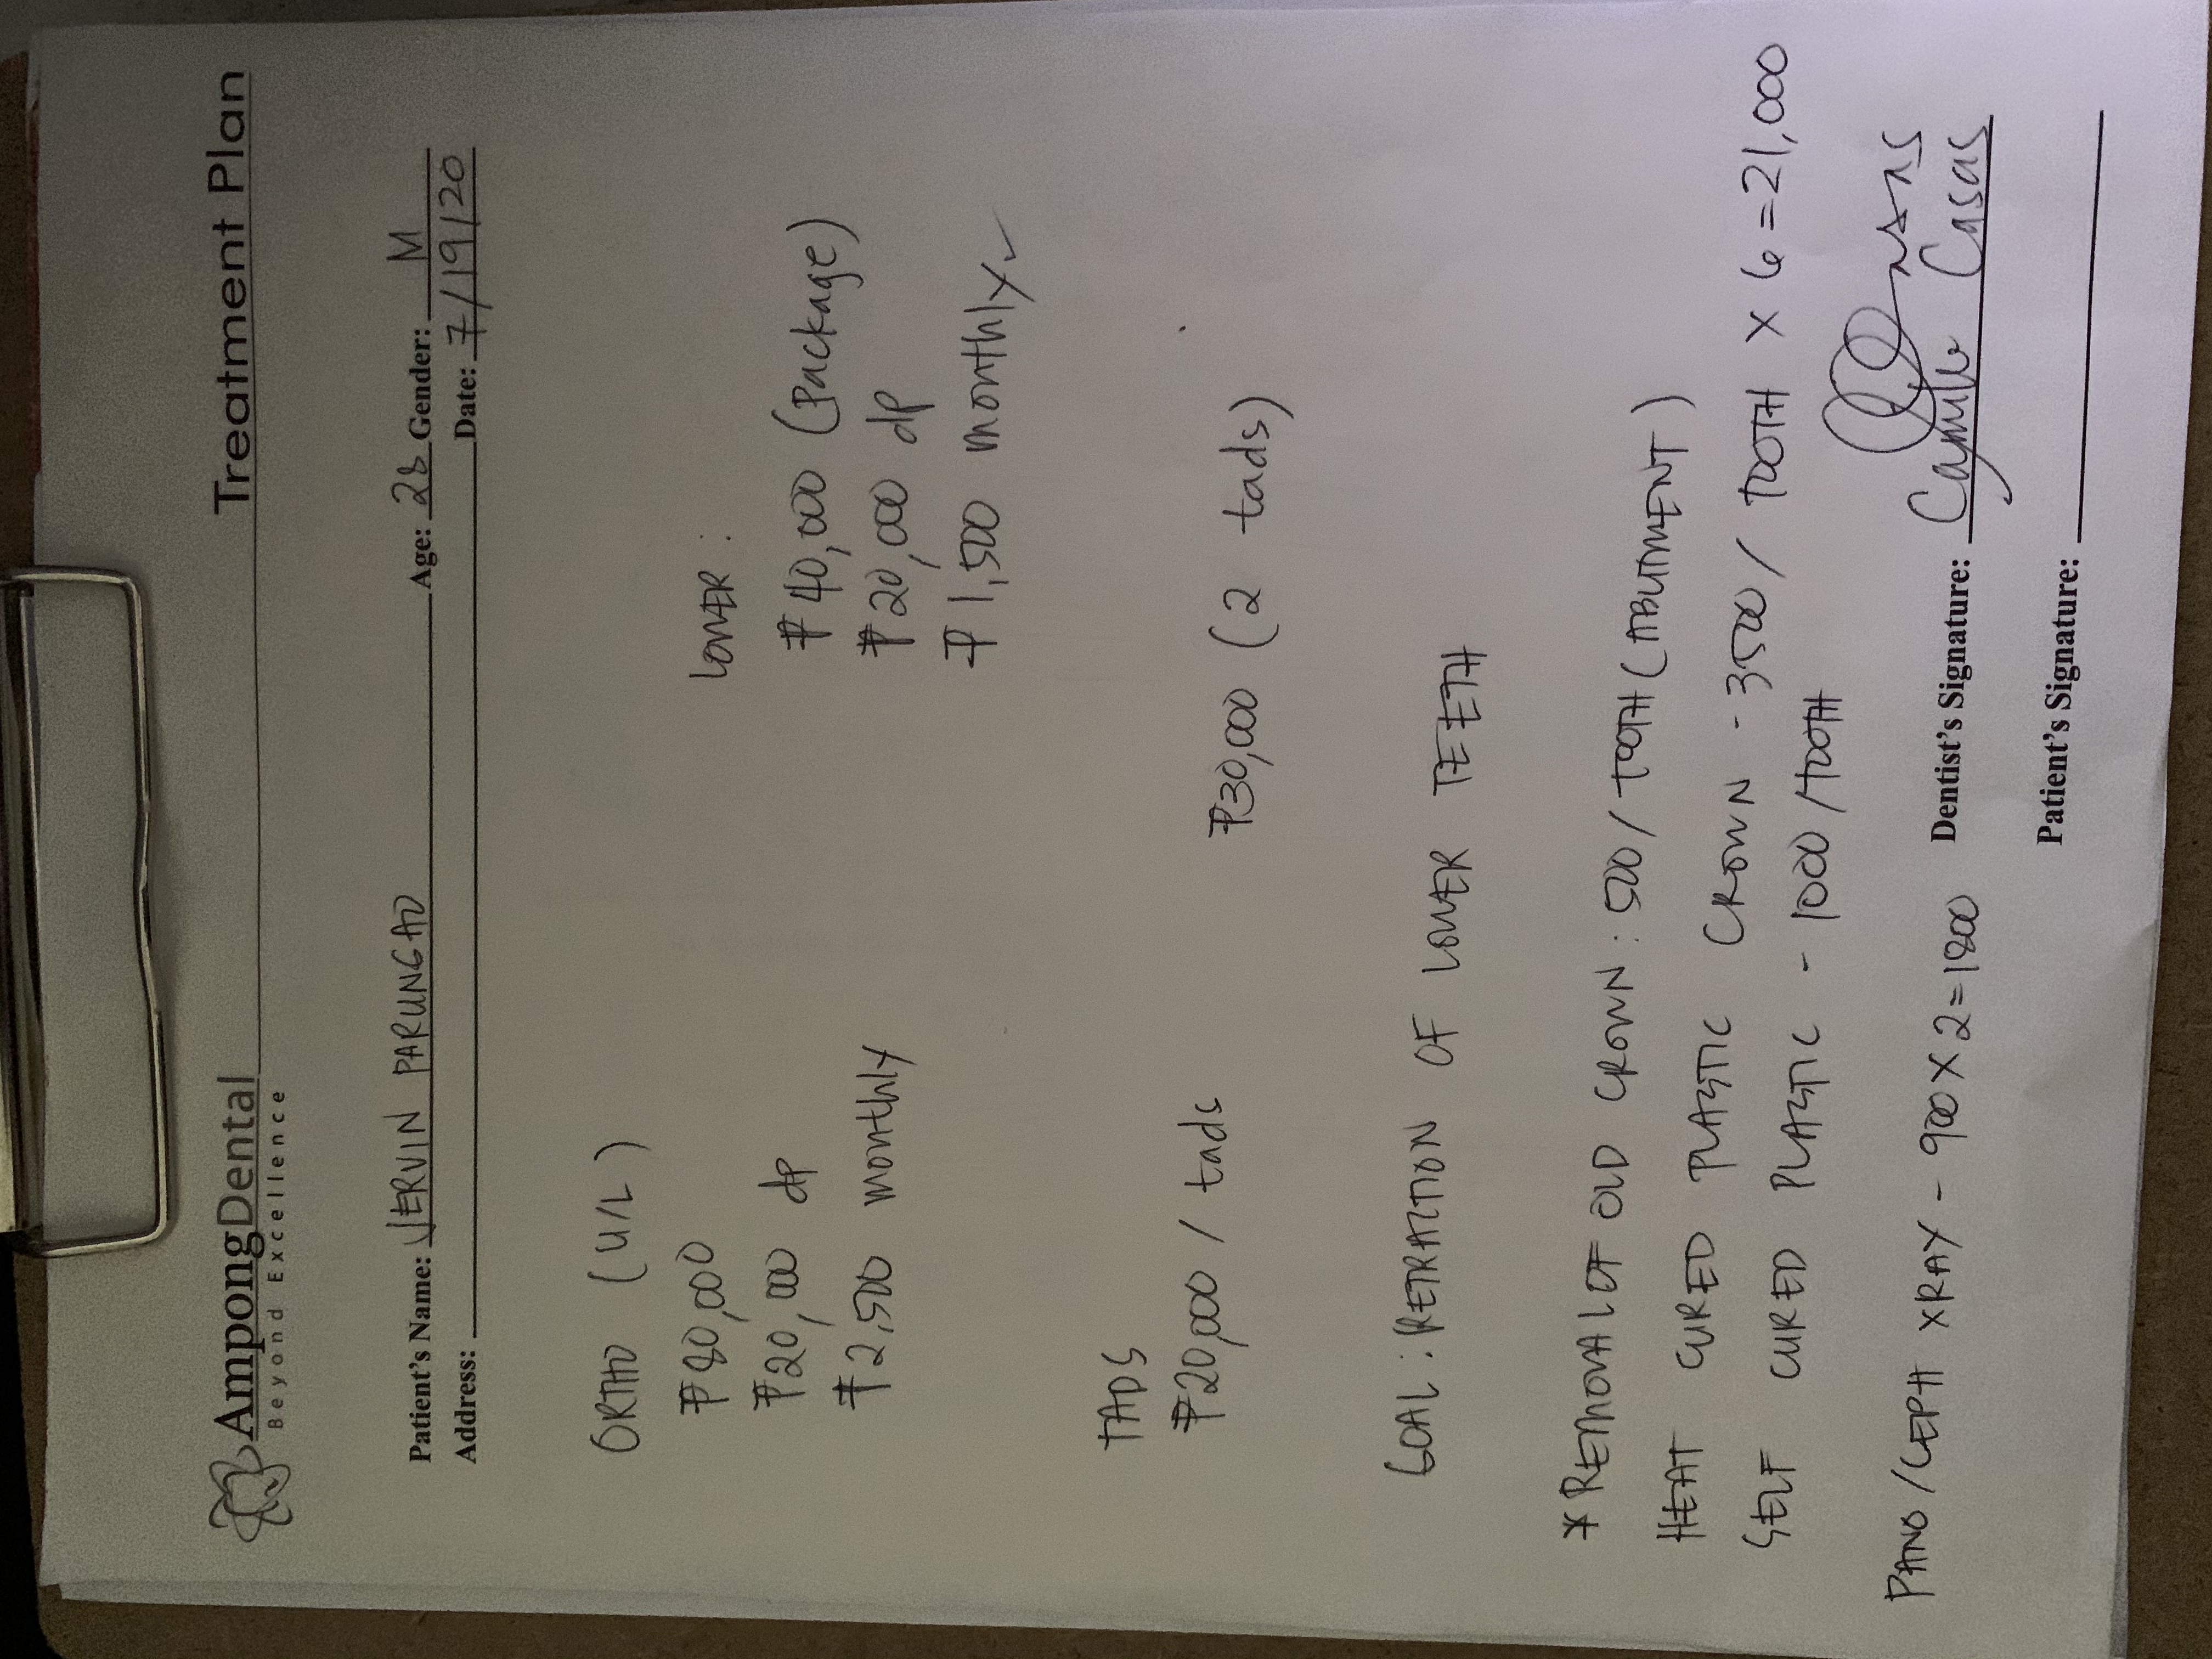 AmpongDental
Beyond Excellence
Treatment Plan
Patient's Name: JERVIN PARUNGAO Age: 28 Gender: M
Address: Date: 7/19/20
ORTHO (U/L)
₱80,000
₱20,000 dp
₱2,500 monthly
LOWER :
₱40,000 (Package)
₱20,000 dp
₱1,500 monthly ✓
TADS
₱20,000 / tads
₱30,000 (2 tads)
GOAL : RETRACTION OF LOWER TEETH
* REMOVAL OF OLD CROWN : 500 / TOOTH (ABUTMENT)
HEAT CURED PLASTIC CROWN - 3500 / TOOTH X 6 = 21,000
SELF CURED PLASTIC - 1000 / TOOTH
PANO / CEPH XRAY - 900 X 2 = 1800
Dentist's Signature: Camille Casas
Patient's Signature: